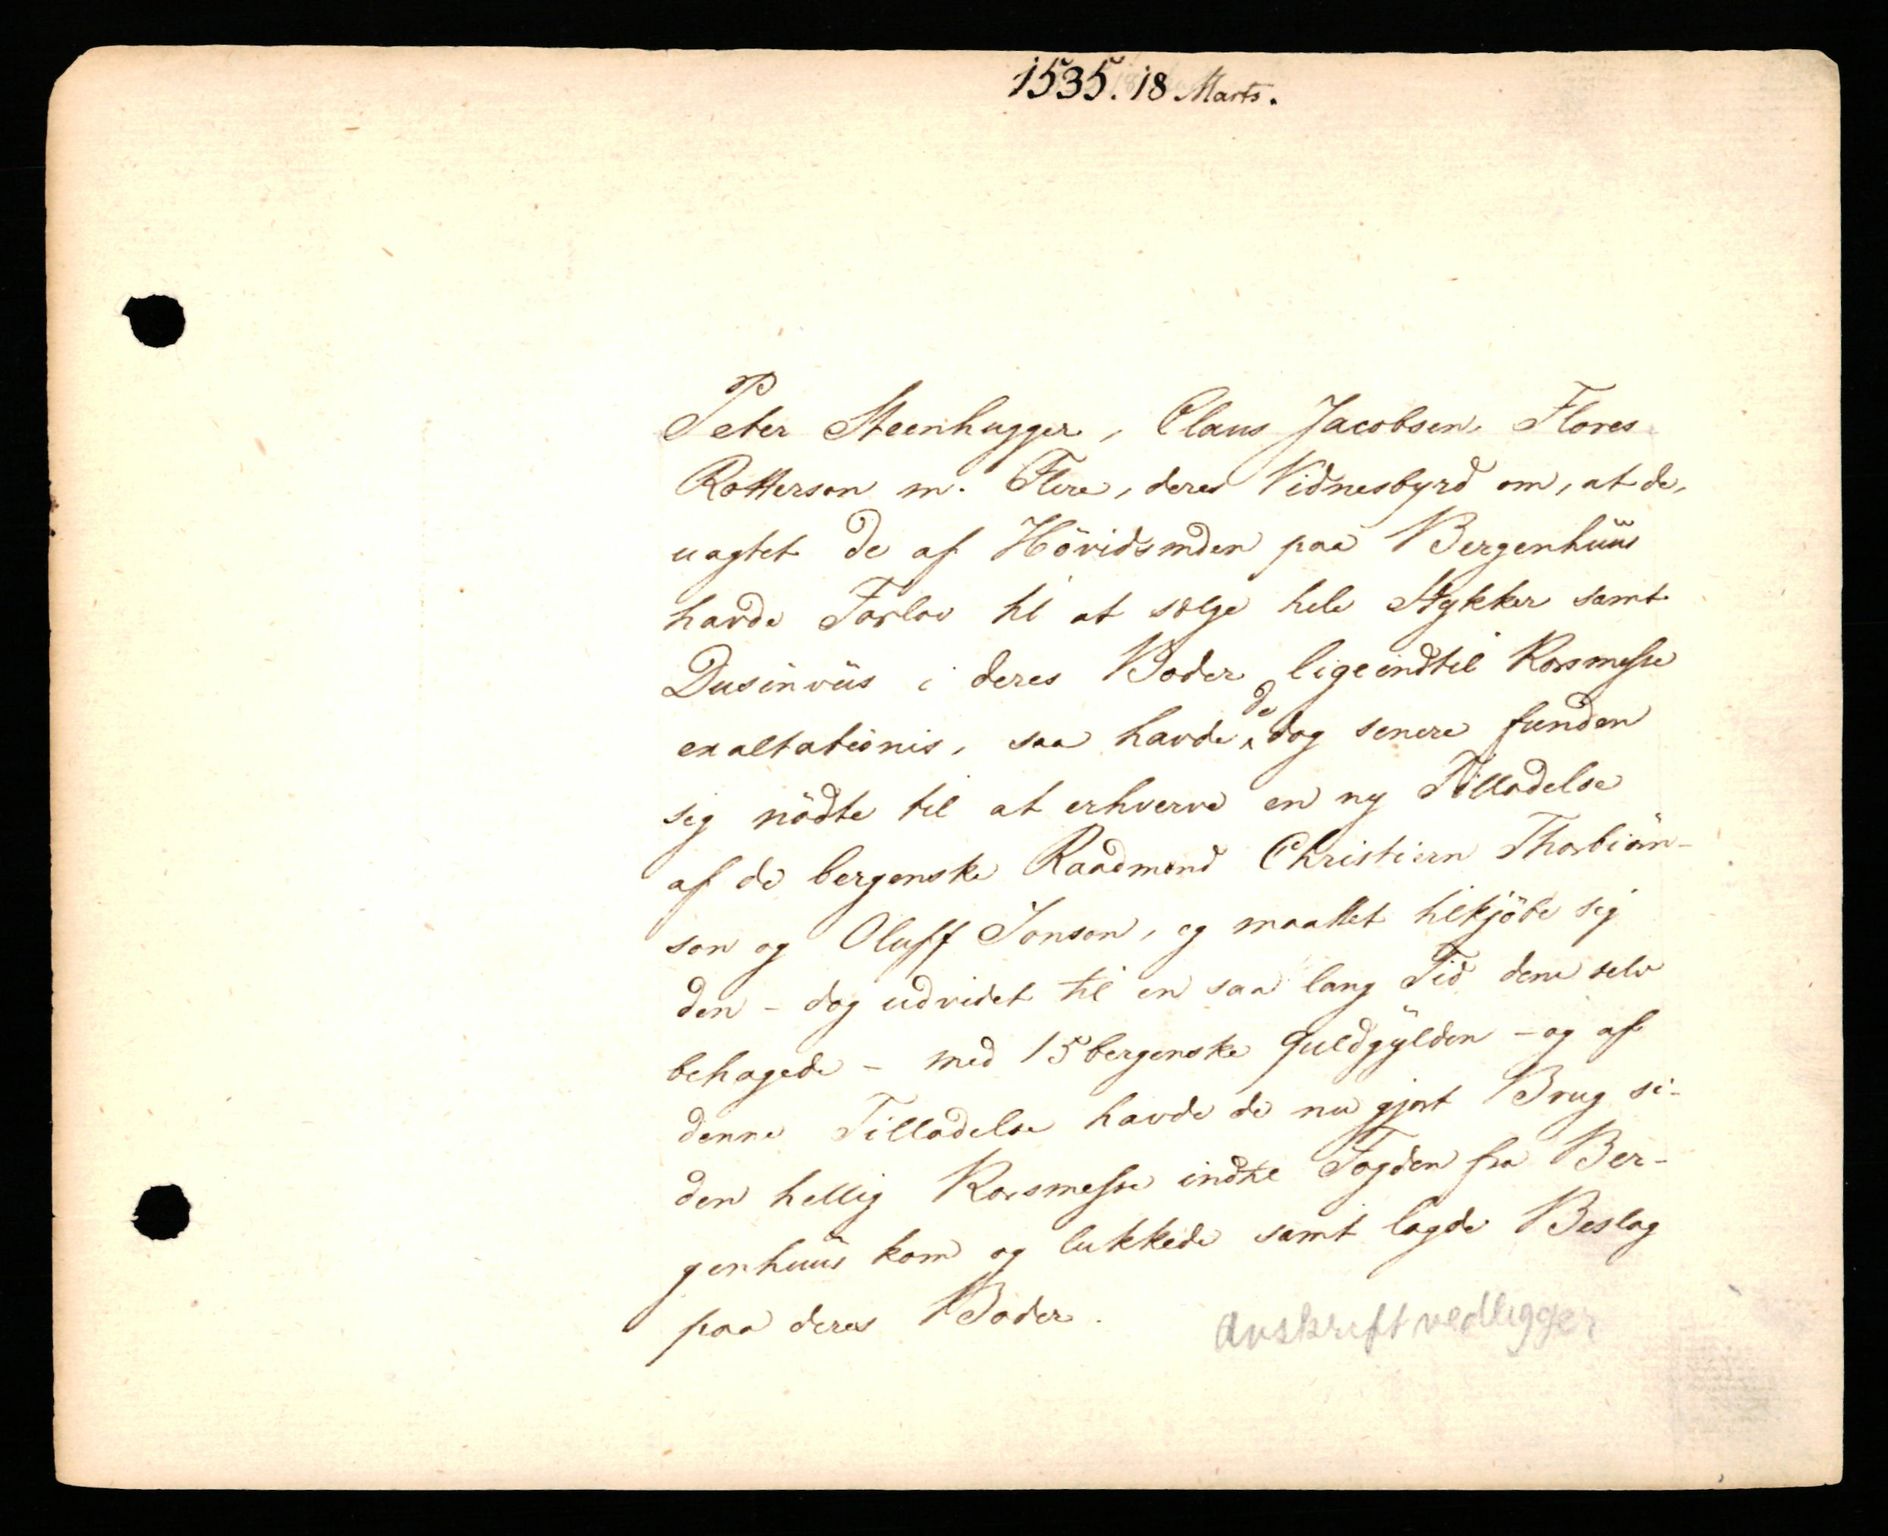 1535. 18 Marts.
Peter Steenhugger, Claus Jacobsen, Flores
Rotterson m. Flere, deres Vidnesbyrd om, at de,
uagtet de af Hövidsmden paa Bergenhuus
havde Forlov til at sælge hele Stykker samt
Dusinviis i deres Boder ligeindtil Korsmesse
exaltationis, saa havde de dog senere funden
sig nödte til at erhverve en ny Tilladelse
af de bergenske Raadmænd Christiern Thorbiörn-
son og Oluff Jonson, og maattet tilkjöbe sig
den - dog udvidet til en saa lang Tid dem selv
behagede - med 15 bergenske Guldgylden - og af
denne Tilladelse havde de nu gjort Brug si-
den hellig Korsmesse indtil Fogden fra Ber-
genhuus kom og lukkede samt lagde Beslag
paa deres Boder.
Avskrift vedligger